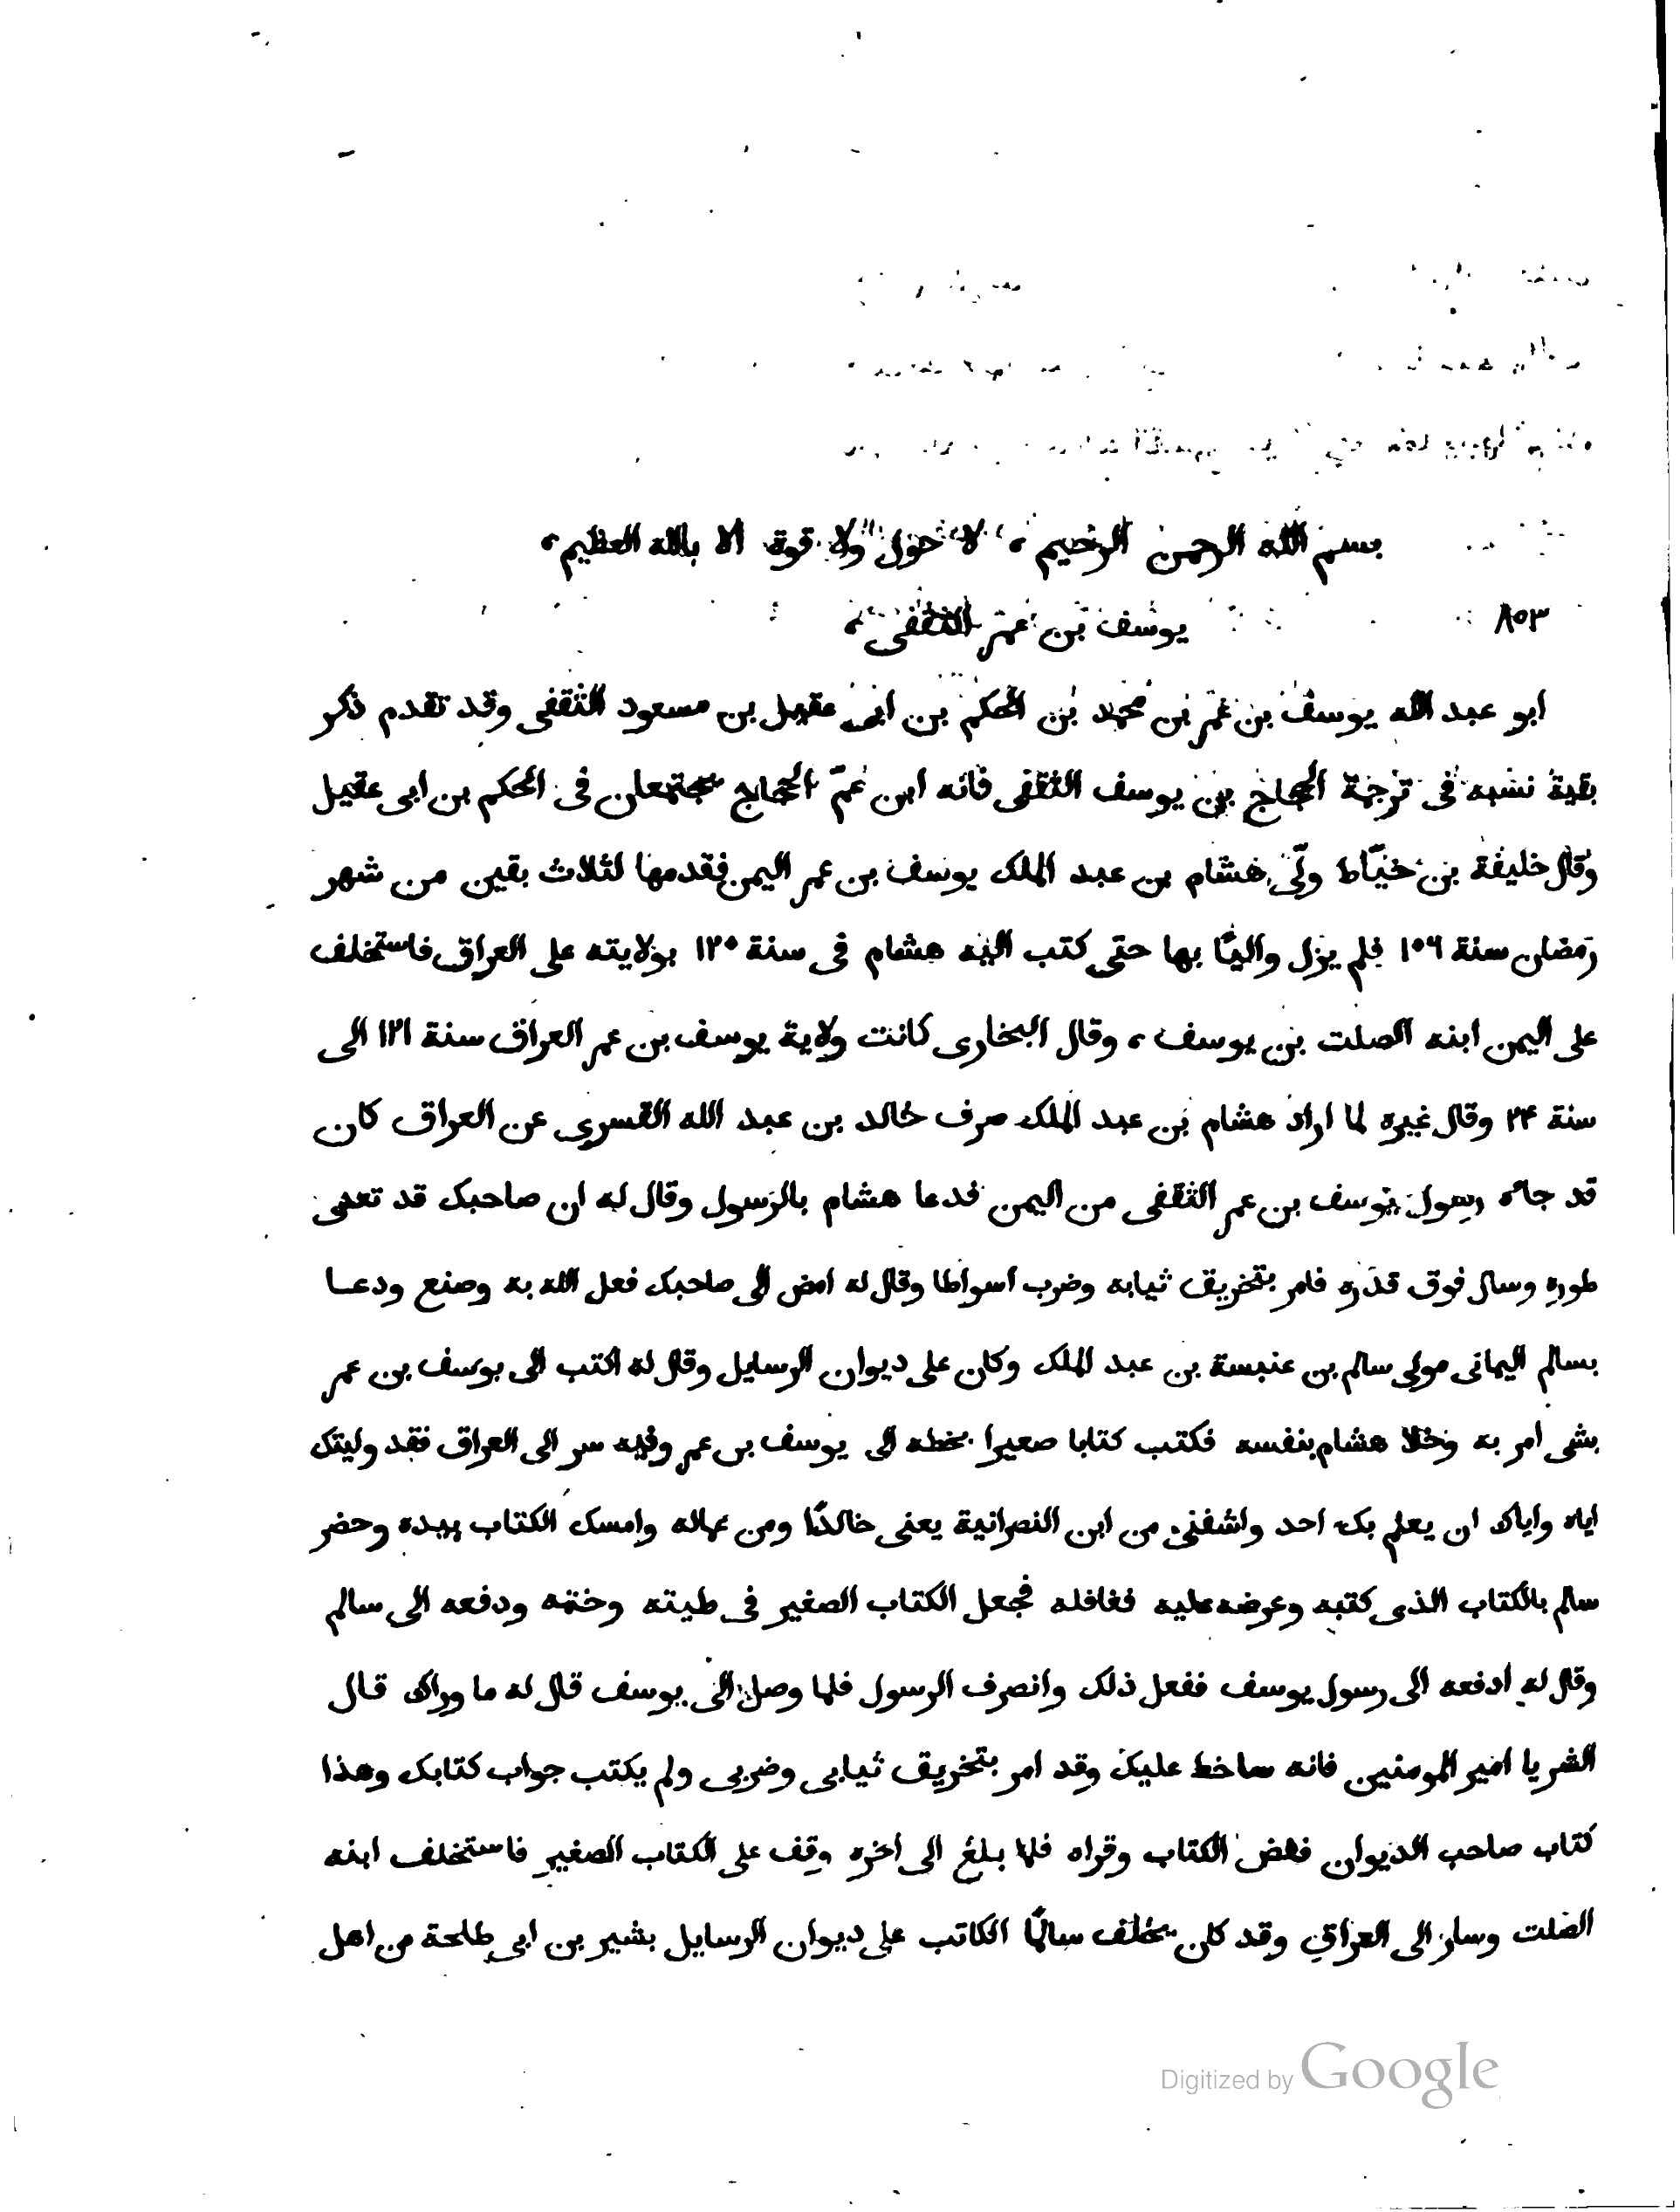 بسم الله الرحمن الرحيم، لا حول ولا قوة الا بالله العظيم،
٨٥٣ يوسف بن عمر الثقفى،
ابو عبد الله يوسف بن عمر بن محمد بن الحكم بن ابى عقيل بن مسعود الثقفى وقد تقدم ذكر
بقية نسبه فى ترجمة الحجاج بن يوسف الثقفى فانه ابن عمّ الحجاج يجتمعان فى الحكم بن ابى عقيل
وقال خليفة بن خيّاط ولّى هشام بن عبد الملك يوسف بن عمر اليمن فقدمها لثلاث بقين من شهر
رمضان سنة ١٠٦ فلم يزل واليًا بها حتى كتب اليه هشام فى سنة ١٢٠ بولايته على العراق فاستخلف
على اليمن ابنه الصلت بن يوسف، وقال البخارى كانت ولاية يوسف بن عمر العراق سنة ١٢١ الى
سنة ٢۴ وقال غيره لما اراد هشام بن عبد الملك صرف خالد بن عبد الله القسرى عن العراق كان
قد جاه رسول يوسف بن عمر الثقفى من اليمن فدعا هشام بالرسول وقال له ان صاحبك قد تعدى
طوره وسال فوق قدره فامر بتخريق ثيابه وضرب اسواطا وقال له امض الى صاحبك فعل الله به وصنع ودعا
بسالم اليمانى مولى سالم بن عنبسة بن عبد الملك وكان على ديوان الرسايل وقال له اكتب الى يوسف بن عمر
بشى امر به وخلا هشام بنفسه فكتب كتابا صعيرا بخطه الى يوسف بن عمر وفيه سر الى العراق فقد وليتك
اياه واياك ان يعلم بك احد واشفنى من ابن النصرانية يعنى خالدًا ومن عماله وامسك الكتاب بيده وحضر
سالم بالكتاب الذى كتبه وعرضه عليه فغافله فجعل الكتاب الصغير فى طيته وختمه ودفعه الى سالم
وقال له ادفعه الى رسول يوسف ففعل ذلك وانصرف الرسول فلما وصل الى يوسف قال له ما وراك قال
الشر يا امير المومنين فانه ساخط عليك وقد امر بتخريق ثيابى وضربى ولم يكتب جواب كتابك وهذا
كتاب صاحب الديوان ففض الكتاب وقراه فلما بلغ الى اخره وقف على الكتاب الصغير فاستخلف ابنه
الصلت وسار الى العراق وقد كان يخلف سالمًا الكاتب على ديوان الرسايل بشير بن ابى طلحة من اهل
Digitized by Google